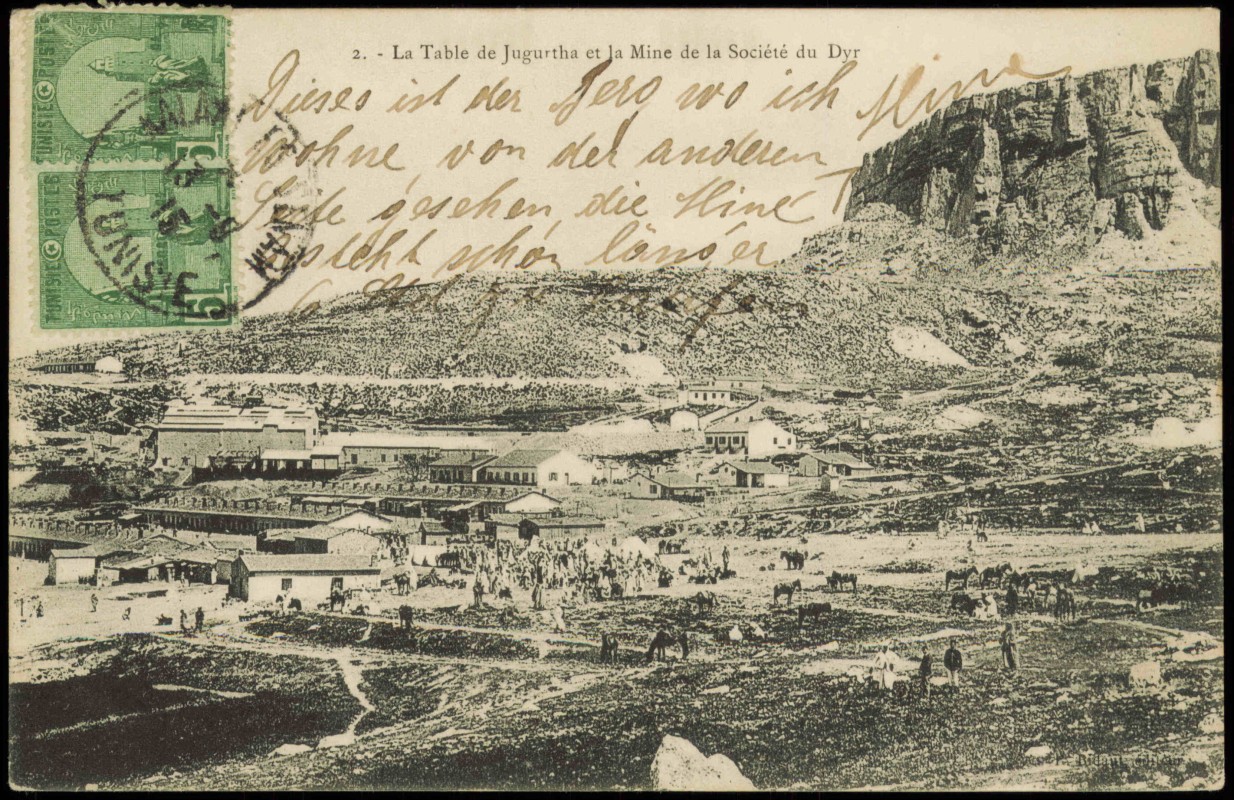 2. - La Table de Jugurtha et la Mine de la Société du Dyr
Dieses ist der Berg wo ich
wohne, von der anderen Mine
Seite gesehen, die Mine
besteht schon länger
TUNISIE POSTES
5
TUNISIE POSTES
5
TUNISIE
éditeur